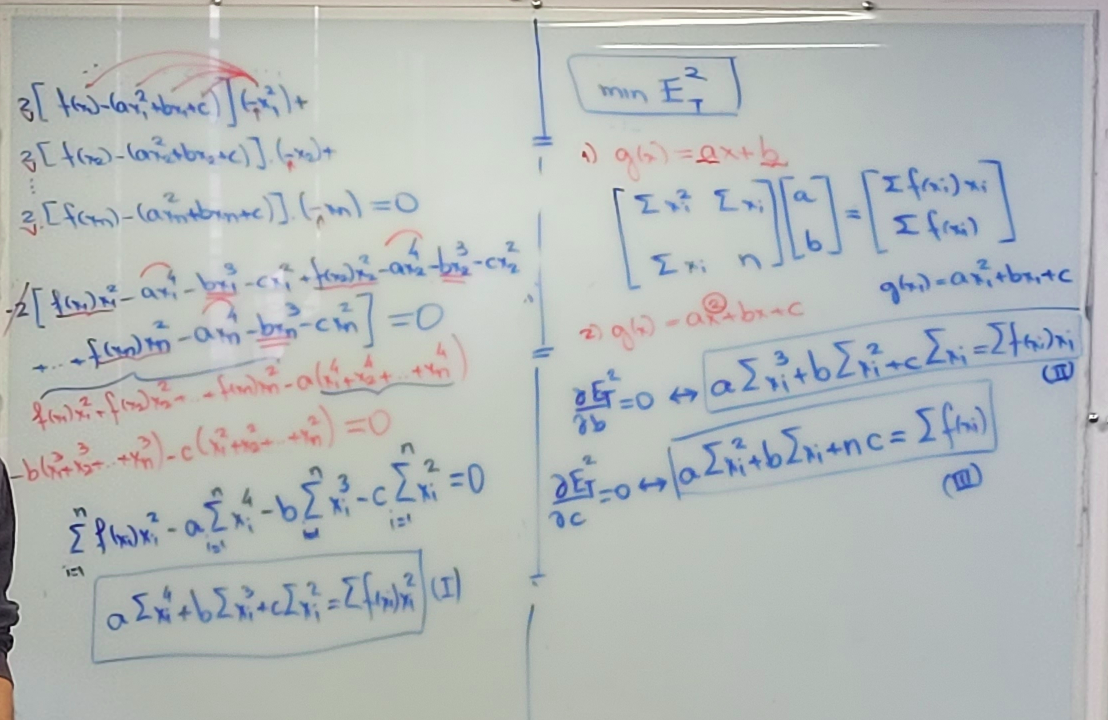 2[f(x₁)-(ax₁²+bx₁+c)](-x₁²)+
2[f(x₂)-(ax₂²+bx₂+c)].(-x₂)+
⋮
2.[f(xn)-(axn²+bxn+c)].(-xn)=0
-2[f(x₁)x₁²-ax₁⁴-bx₁³-cx₁²+f(x₂)x₂²-ax₂⁴-bx₂³-cx₂²
+..+f(xn)xn²-axn⁴-bxn³-cxn²]=0
f(x₁)x₁²+f(x₂)x₂²+..+f(xn)xn²-a(x₁⁴+x₂⁴+..+xn⁴)
-b(x₁³+x₂³+..+xn³)-c(x₁²+x₂²+..+xn²)=0
∑ⁿᵢ₌₁ f(xᵢ)xᵢ²-a∑ⁿᵢ₌₁ xᵢ⁴-b∑ⁿᵢ₌₁ xᵢ³-c∑ⁿᵢ₌₁ xᵢ²=0
a∑xᵢ⁴+b∑xᵢ³+c∑xᵢ²=∑f(xᵢ)xᵢ² (I)
min E_T²
1) g(x)=ax+b
[∑xᵢ² ∑xᵢ] [a] = [∑f(xᵢ)xᵢ]
[∑xᵢ n] [b] [∑f(xᵢ)]
g(x₁)=ax₁²+bx₁+c
2) g(x)=ax²+bx+c
∂E_T²/∂b=0 ↔ a∑xᵢ³+b∑xᵢ²+c∑xᵢ=∑f(xᵢ)xᵢ (II)
∂E_T²/∂c=0 ↔ a∑xᵢ²+b∑xᵢ+nc=∑f(xᵢ) (III)